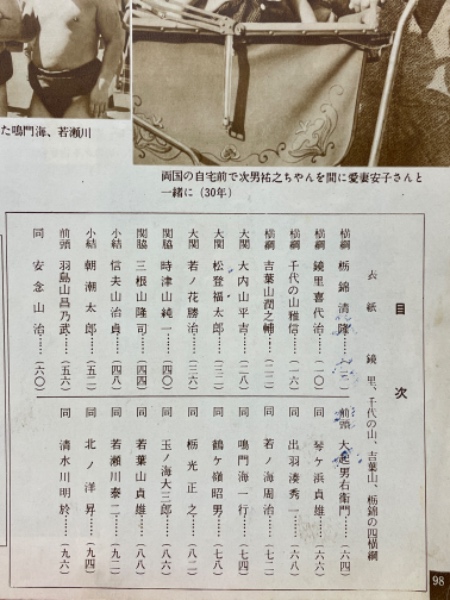 た鳴門海、若瀬川
両国の自宅前で次男祐之ちやんを間に愛妻安子さんと
一緒に（30年）
目次
表紙 鏡里、千代の山、吉葉山、栃錦の四横綱
横綱 栃錦清隆……
横綱 鏡里喜代治……（一〇）
横綱 千代の山雅信……（一六）
横綱 吉葉山潤之輔……（二二）
大関 大内山平吉……（二八）
大関 松登福太郎……（三二）
大関 若ノ花勝治……（三六）
関脇 時津山純一……（四〇）
関脇 三根山隆司……（四四）
小結 信夫山治貞……（四八）
小結 朝潮太郎……（五二）
前頭 羽島山昌乃武……（五六）
同 安念山治……（六〇）
前頭 大起男右衛門……（六四）
同 琴ケ浜貞雄……（六六）
同 出羽湊秀一……（六八）
同 若ノ海周治……（七二）
同 鳴門海一行……（七四）
同 鶴ケ嶺昭男……（七八）
同 栃光正之……（八二）
同 玉ノ海大三郎……（八六）
同 若葉山貞雄……（八八）
同 若瀬川泰二……（九二）
同 北ノ洋昇……（九四）
同 清水川明於……（九六）
98